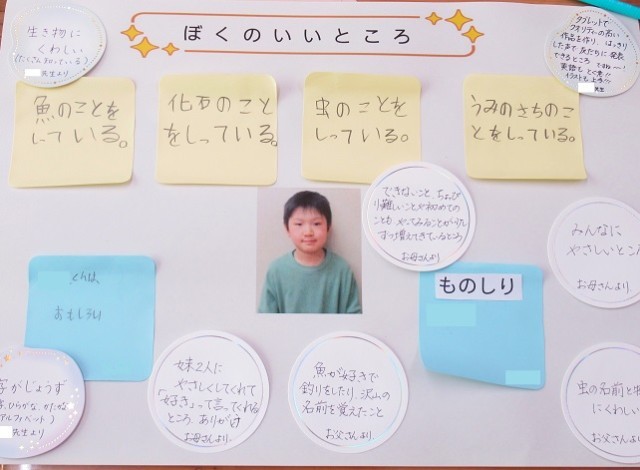 ぼくのいいところ
生き物に
くわしい
(たくさん知っている)
先生より
タブレットで
クオリティの高い
作品を作り、はっきり
した声で友だちに発表
できるところ
英語もとくい!!
イラストも上手!!
先生
魚のことを
しっている。
化石のこと
をしっている。
虫のことを
しっている。
うみのさちのこ
とをしっている。
できないこと、ちょっぴ
り難しいことや初めての
ことも、やってみることが少し
ずつ増えてきているところ
お母さんより
みんなに
やさしいところ
お母さんより
くんは
おもしろい
ものしり
字がじょうず
ひらがな、かたかな
アルファベット)
先生より
妹2人に
やさしくしてくれて
「好き」って言ってくれる
ところ。ありがとう
お母さんより
魚が好きで
釣りをしたり、沢山の
名前を覚えたこと
お父さんより
虫の名前と
にくわしい
お父さんより